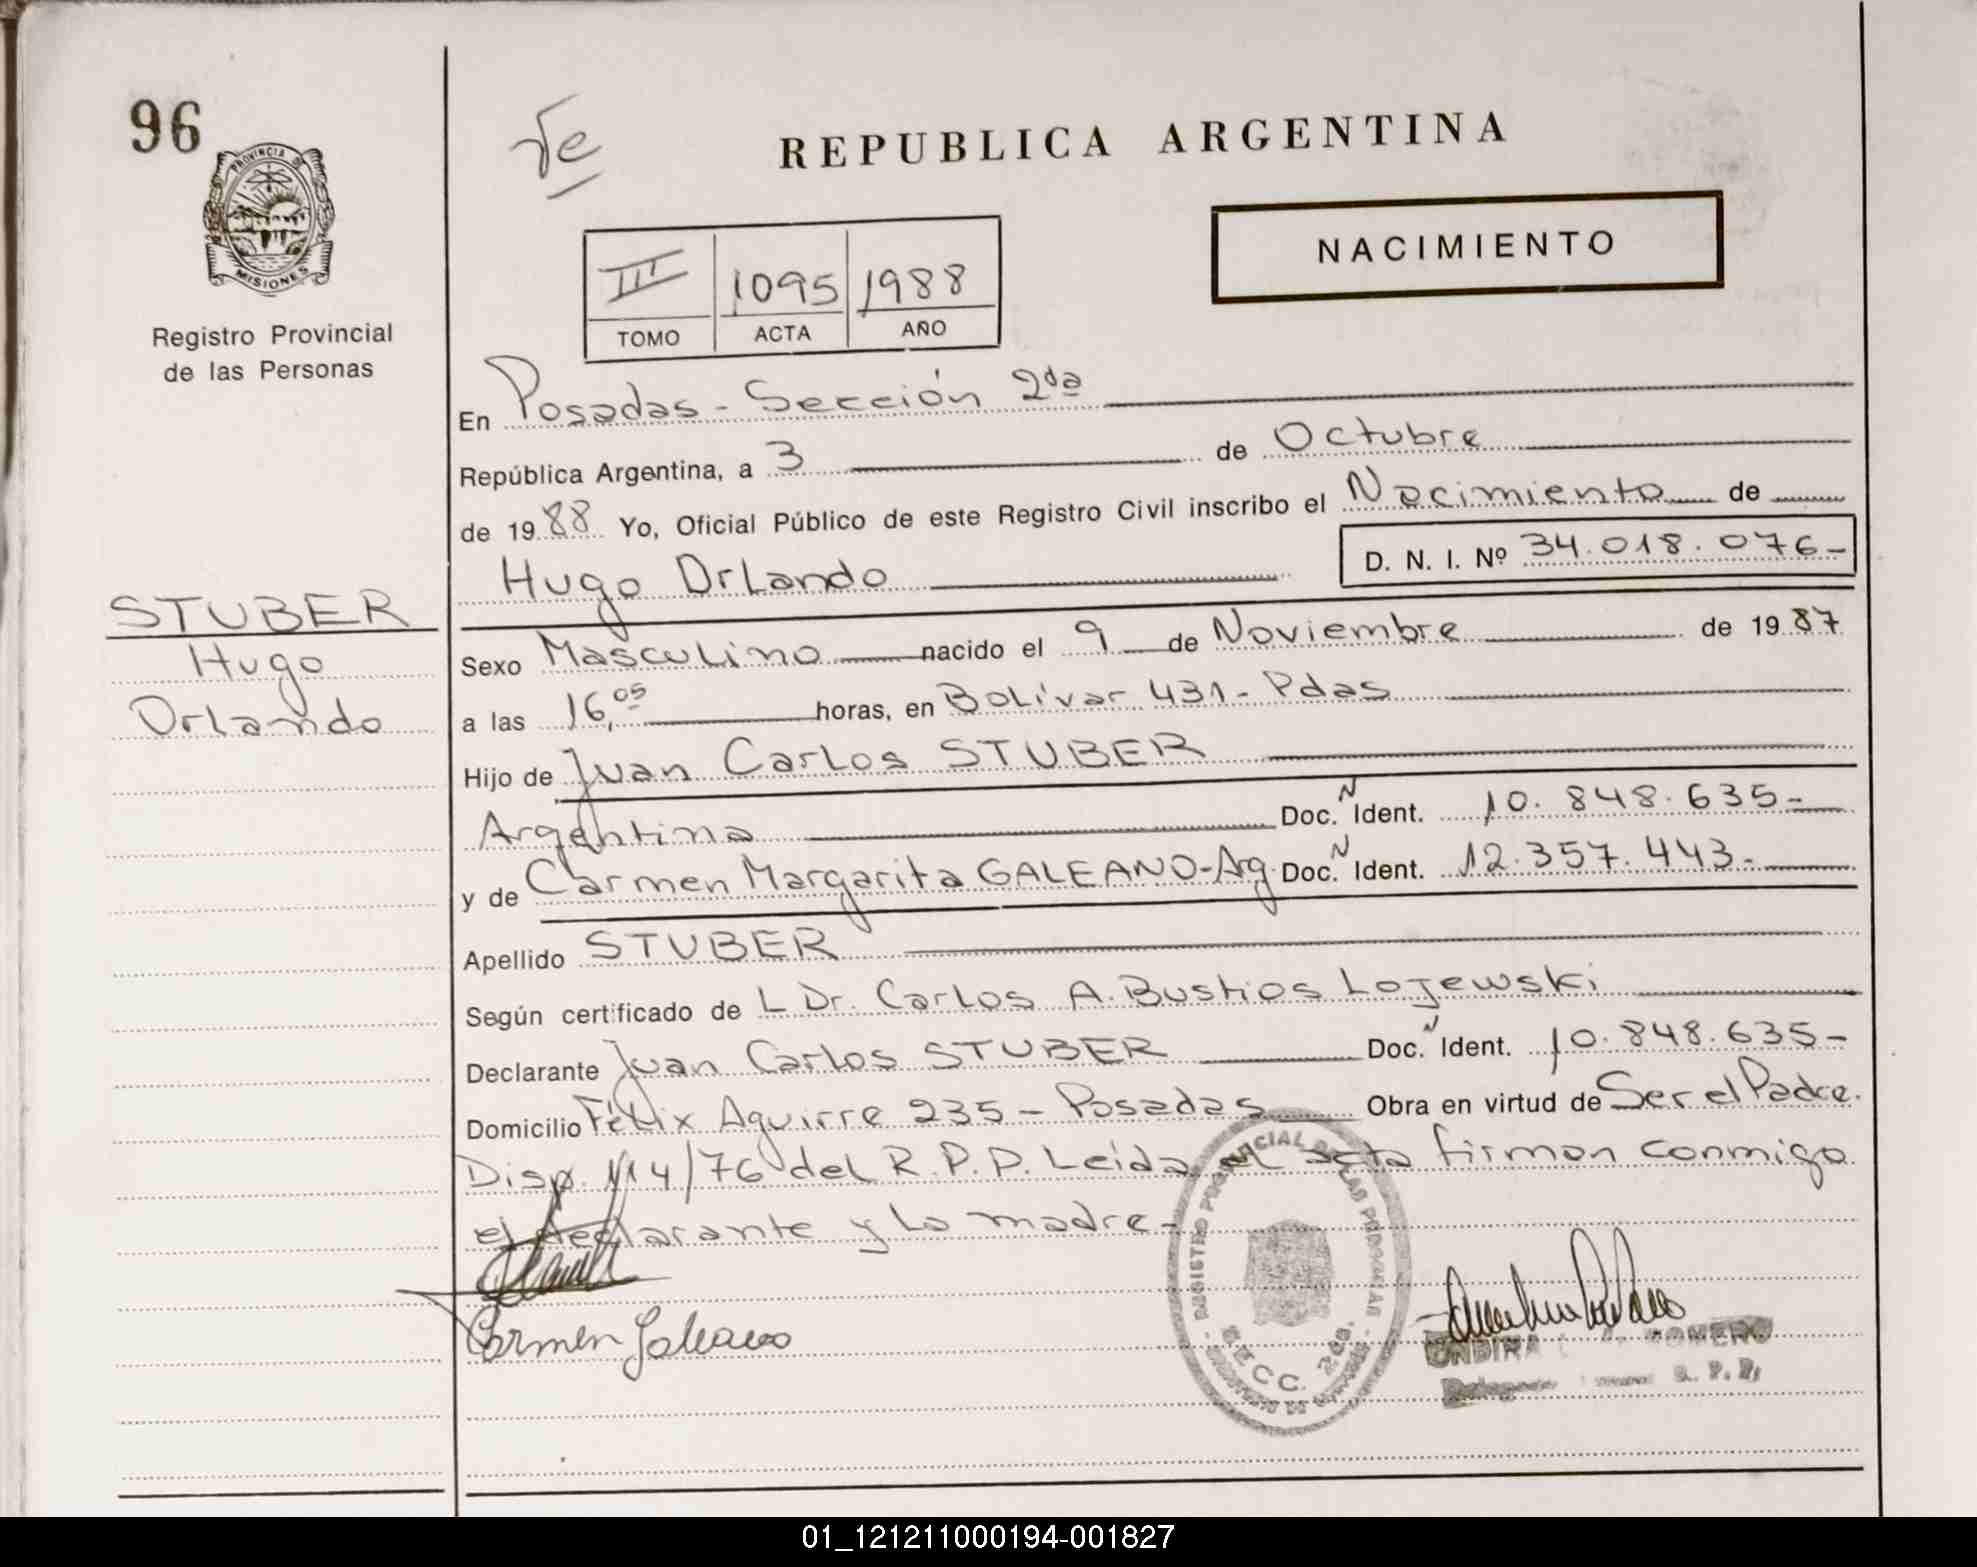 96
PROVINCIA DE
MISIONES
Registro Provincial
de las Personas
STUBER
Hugo
Orlando
REPUBLICA ARGENTINA
NACIMIENTO
III 1095 1988
TOMO ACTA AÑO
En Posadas - Sección 2da
República Argentina, a 3 de Octubre
de 1988 Yo, Oficial Público de este Registro Civil inscribo el Nacimiento de
Hugo Orlando D. N. I. Nº 34.018.076-
Sexo Masculino nacido el 9 de Noviembre de 1987
a las 16,05 horas, en Bolívar 431 - Pdas
Hijo de Juan Carlos STUBER
Argentina Doc. N Ident. 10.848.635-
y de Carmen Margarita GALEANO-Arg. Doc. N Ident. 12.357.443-
Apellido STUBER
Según certificado de L Dr. Carlos A. Bustios Lojewski
Declarante Juan Carlos STUBER Doc. N Ident. 10.848.635-
Domicilio Félix Aguirre 235 - Posadas Obra en virtud de Ser el Padre.
Disp. 114/76 del R.P.P. Leída el acta firman conmigo
el declarante y la madre-
REGISTRO PROVINCIAL DE LAS PERSONAS
SECC. 2da.
Carmen Galeano
ROMERO
R. P. P.
01_121211000194-001827